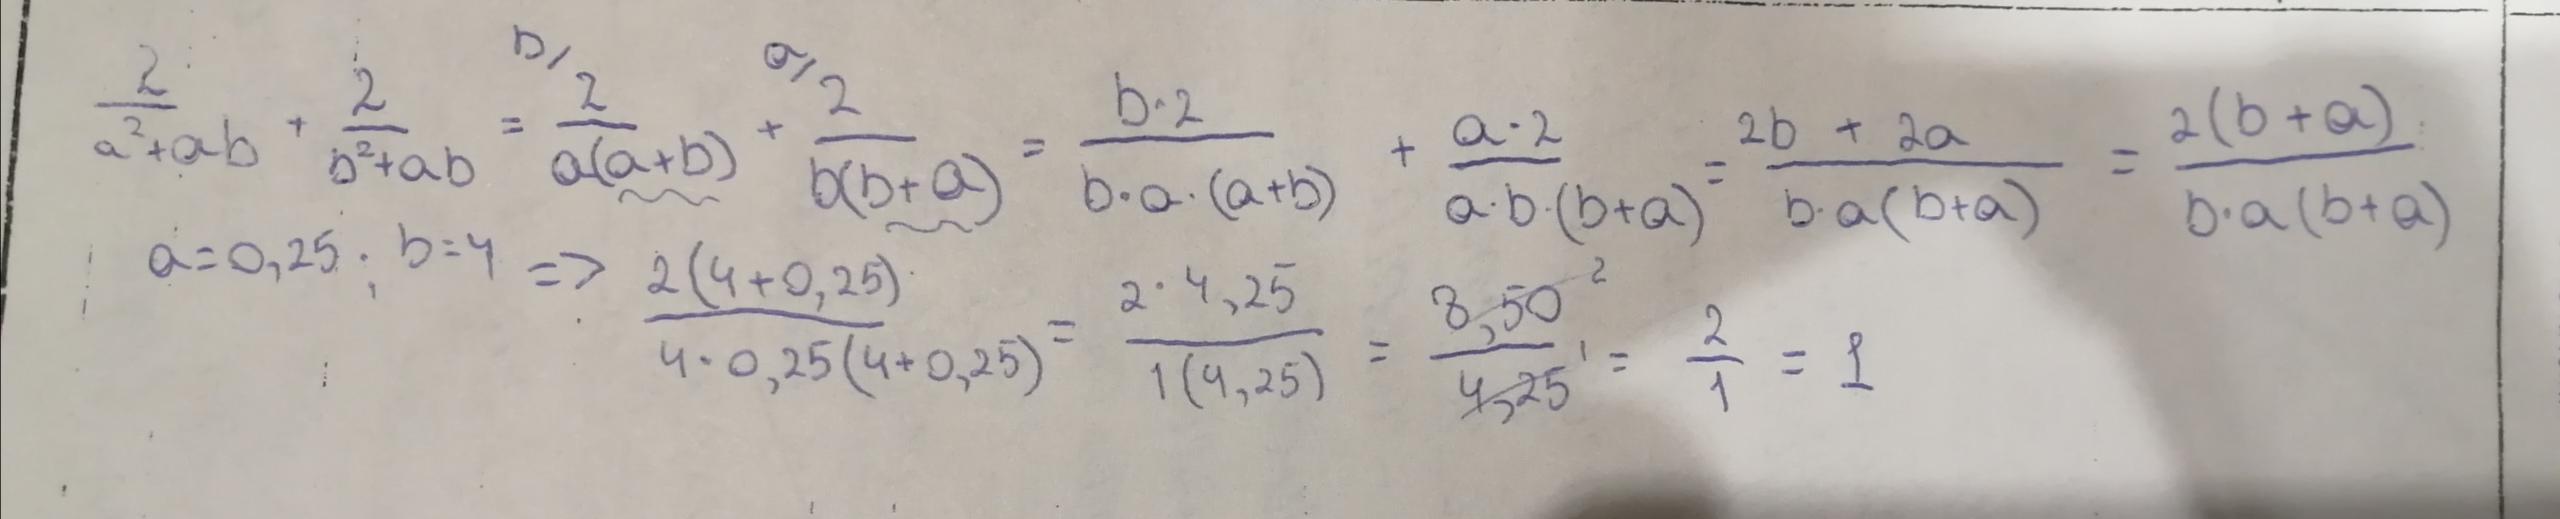 2/(a²+ab) + 2/(b²+ab) = b/ 2/(a(a+b)) + a/ 2/(b(b+a)) = b·2/(b·a·(a+b)) + a·2/(a·b·(b+a)) = (2b + 2a)/(b·a(b+a)) = 2(b+a)/(b·a(b+a))
a=0,25; b=4 => 2(4+0,25)/(4·0,25(4+0,25)) = 2·4,25/(1(4,25)) = 8,50 ²/4,25 ¹ = 2/1 = 1